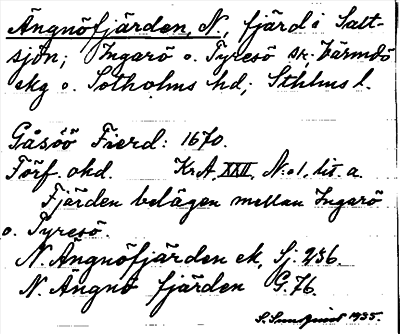 Ängnöfjärden, N., fjärd i Salt-
sjön; Ingarö o. Tyresö sk. Värmdö
skg o. Sotholms hd; Sthlms l.
Gåsöö Fierd: 1670.
Förf. okd. KrA, XXII, N:o 1, lit. a.
Fjärden belägen mellan Ingarö
o. Tyresö.
N. Ängnöfjärden ek, Sj. 236.
N. Ängnö fjärden G. 76.
S. Sundquist 1935.